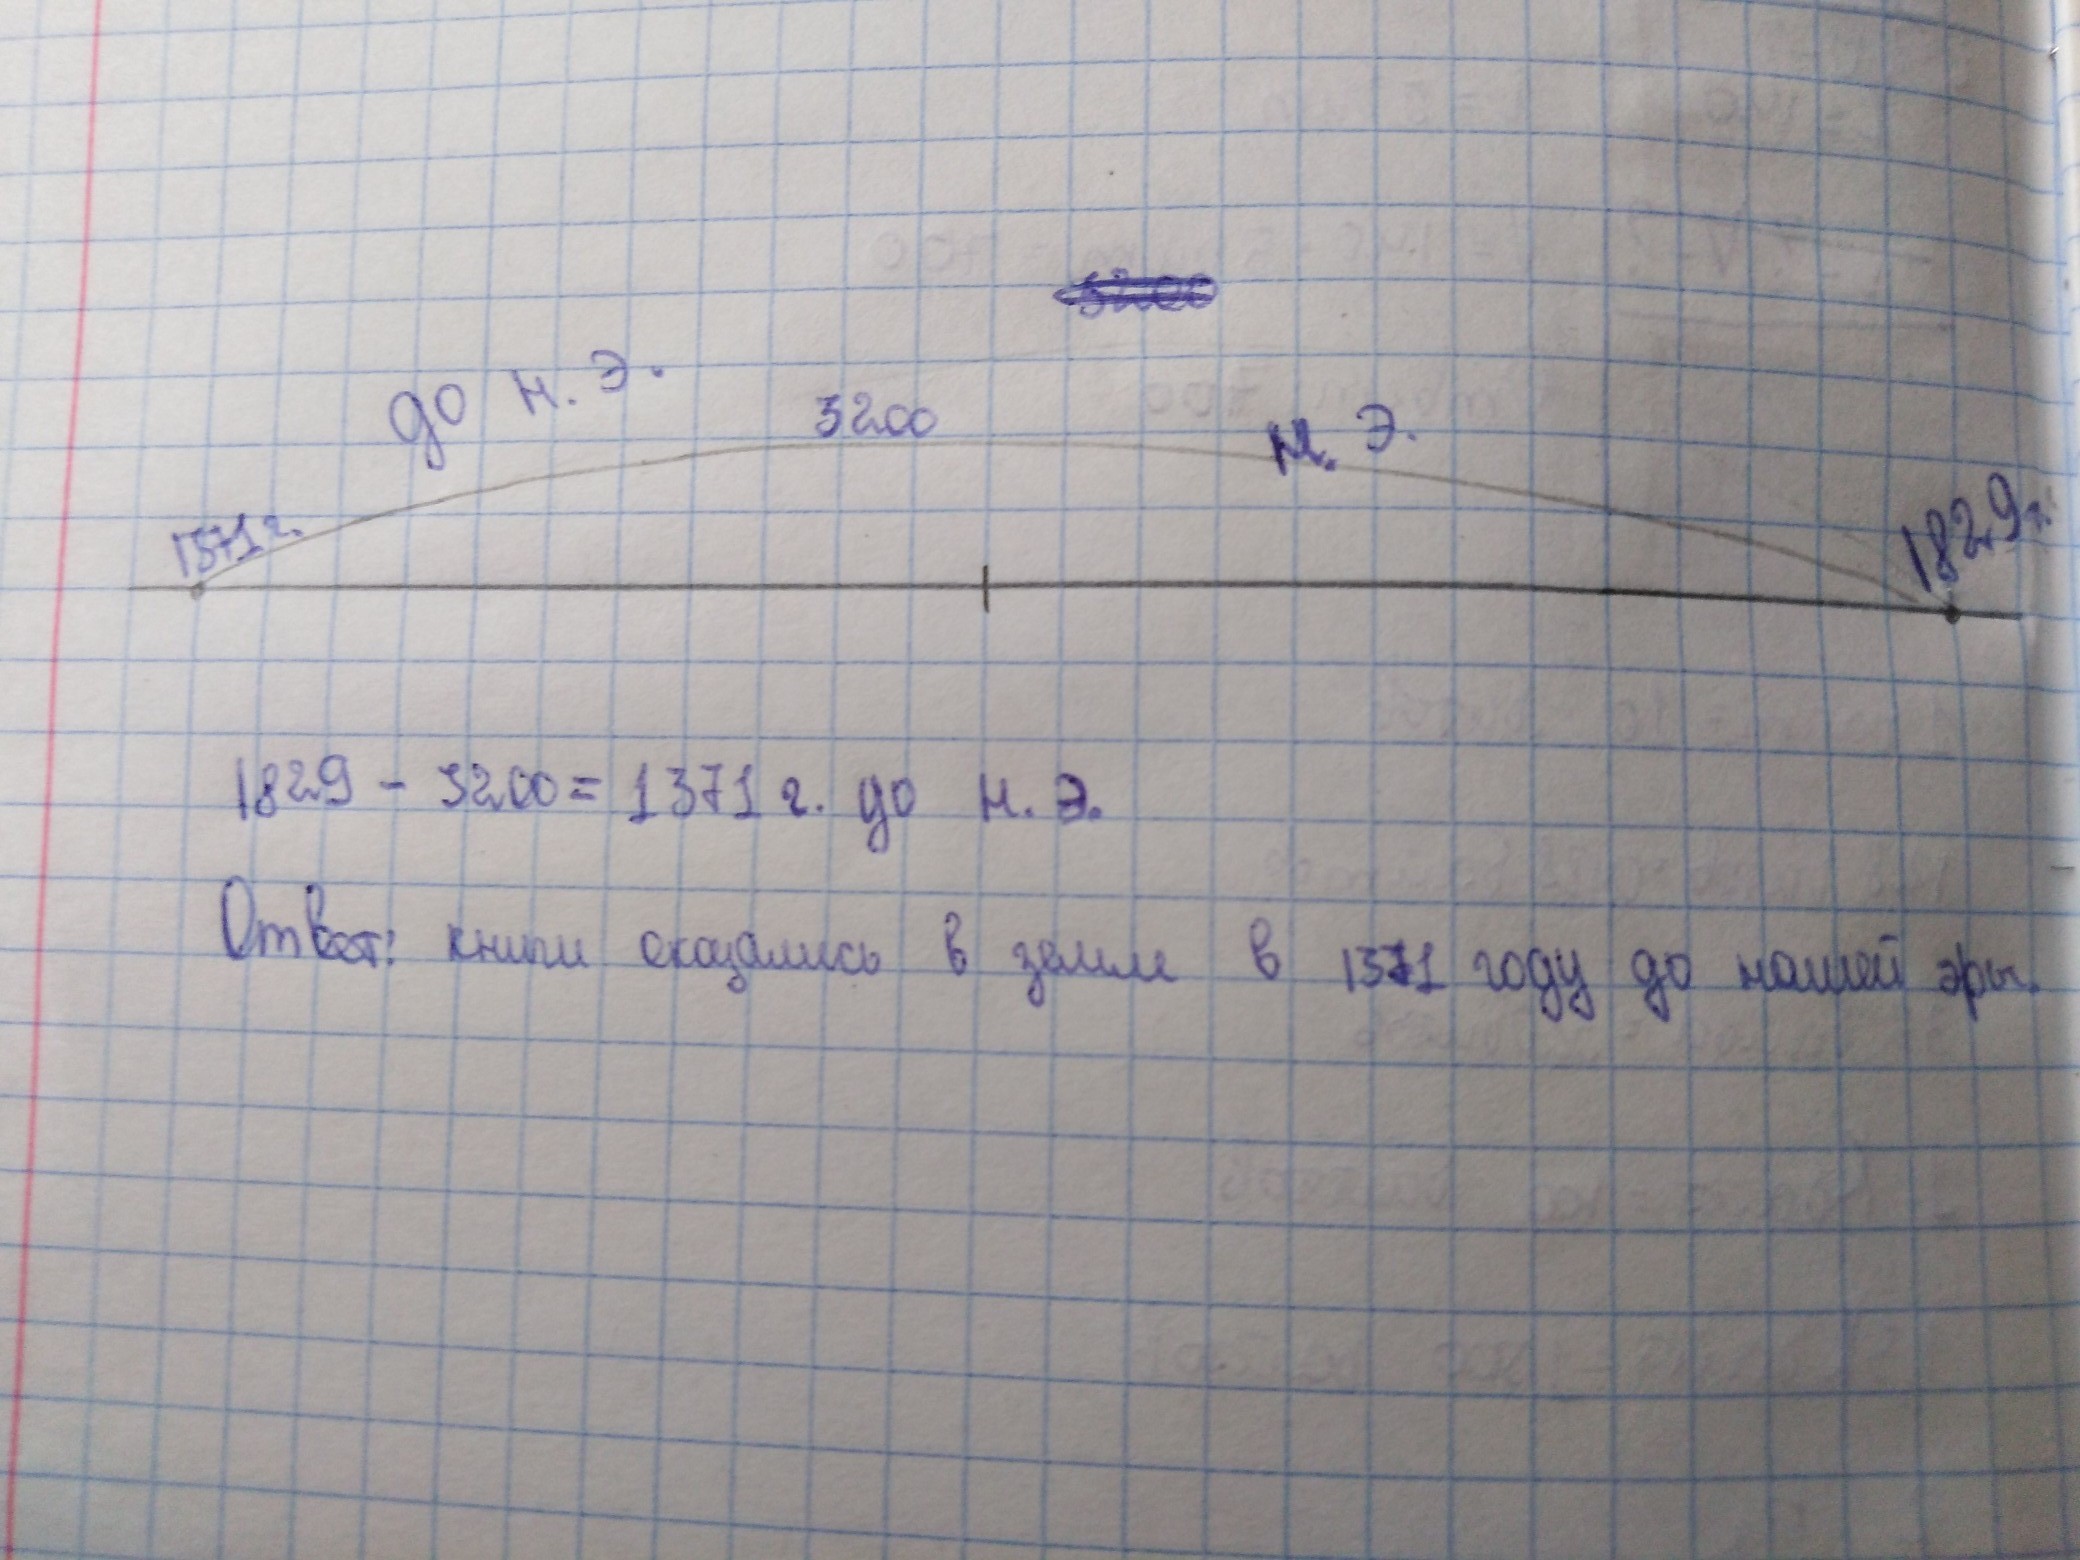 до н. э. 3200 н. э.
1371 г. 1829 г.
1829 - 3200 = 1371 г. до н. э.
Ответ: книги оказались в земле в 1371 году до нашей эры.